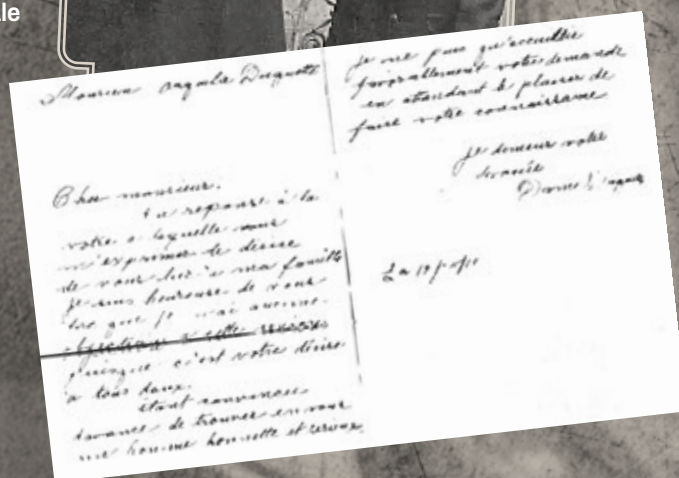 le
Monsieur Duquette
Cher monsieur.
En reponse à la
votre a laquelle vous
m'exprimer le désire
de vous lier a ma famille
je suis heureuse de vous
dire que je n'ai aucune
objection a cette
puisque c'est votre désire
a tous deux.
étant convaincue
davance de trouver en vous
une homme honnette et serieux
je ne puis qu'accueillir
favorablement votre demande
en attendant le plaisir de
faire votre connaissance
je demeur votre
devouée
Dame
La 19